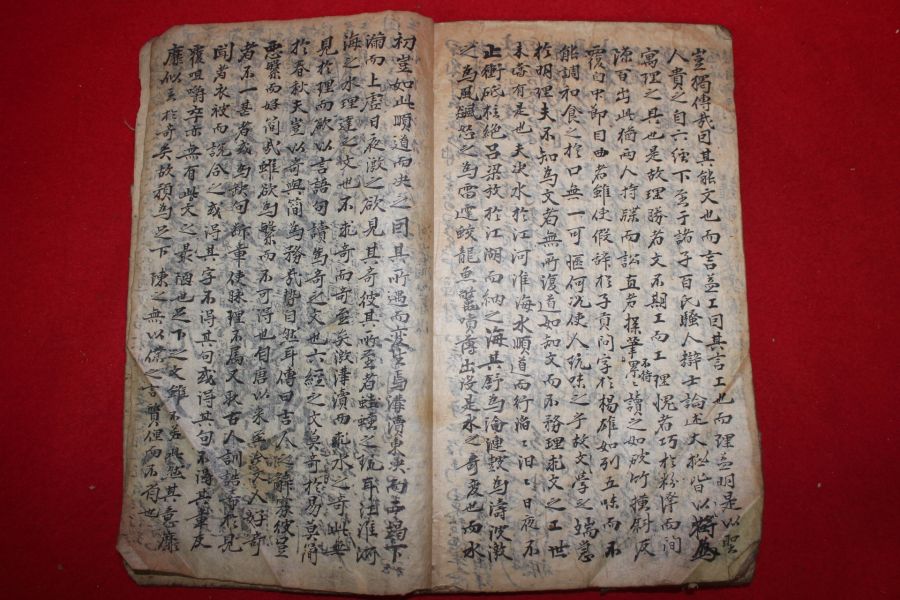 豈獨傳哉因其能文也而言益工因其言工也而理益明是以聖
人貴之自六經下至于諸子百氏騷人辯士論述大抵皆以將為
寓理之具也是故理勝者文不期工而工理愧者巧於粉澤而間
隙百出此猶兩人持牒而訟直者操筆不待累々讀之如破竹橫斜反
覆自中節目曲者雖使假辭於子貢問字於楊雄如列五味而不
能調和食之於口無一可愜何況使人玩味之乎故文學之端急
於明理夫不知為文者無所復道如知文而不務理求文之工世
未嘗有是也夫決水於江河淮海水順道而行滔々汩々日夜不
止衝砥柱絕呂梁放於江湖而納之海其舒為淪漣鼓為濤波激
之為風飆怒之為雷霆蛟龍魚鱉噴薄出沒是水之奇變也而水
初豈如此順道而決之因其所遇而變生焉溝瀆東決而西竭下
滿而上虛日夜激之欲見其奇彼其所至者蛙蛭之玩耳江淮河
海之水理達之文也不求奇而奇至矣激溝瀆而求水之奇此無
見於理而欲以言語句讀為奇之文也六經之文莫奇於易莫簡
於春秋夫豈以奇與簡為務哉勢自然耳傳曰吉人之辭寡彼豈
惡繁而好簡哉雖欲為繁而不可得也自唐以來至今文人好奇
者不一甚者或為缺句斷章使脉理不屬又取古人訓詁希於見
聞者衣被而說合之或得其字不得其句或得其句不得其章反
覆咀嚼卒亦無有此文之最陋也足下之文雖不若此然其意靡
靡似主於奇矣故預為足下陳之無以僕之言質俚而不省也